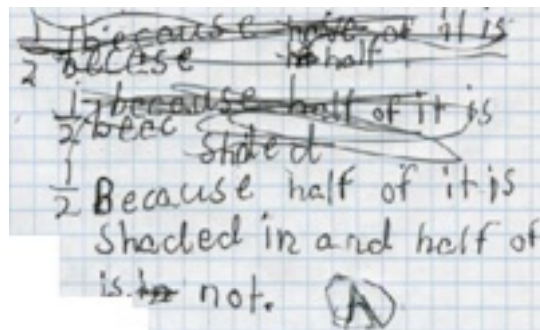 1/2 because have of it is
becese half
1/2 because half of it is
beec shded
1/2 Because half of it is
Shaded in and half of
is in not. A